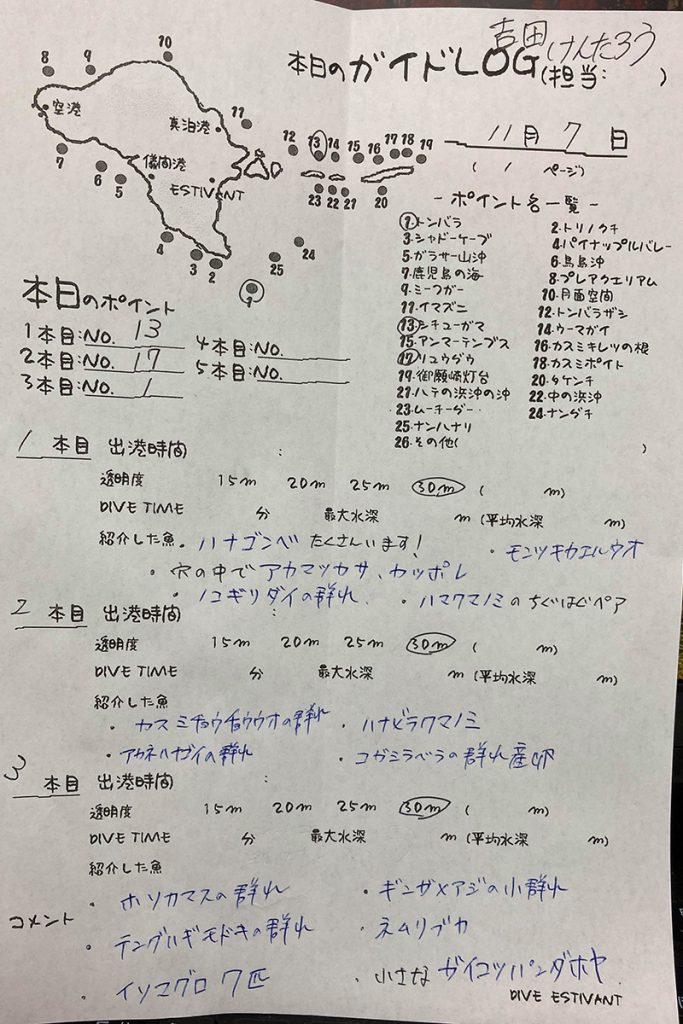 吉田けんたろう
本日のガイドLOG(担当: )
11月 7 日
( / ページ)
10
8 9
空港
真泊港
11
7
6
5
儀間港
ESTIVANT
12 13 14 15 16 17 18 19
23 22 21 20
4
3 2
24
25
1
- ポイント名一覧 -
1.トンバラ 2.トリノクチ
3.シャドーケーブ 4.パイナップルバレー
5.ガラサー山沖 6.鳥島沖
7.鹿児島の海 8.プレアクエリアム
9.ミーフガー 10.月面空間
11.イマズニ 12.トンバラザシ
13.シチューガマ 14.ウーマガイ
15.アンマーテンプス 16.カスミキレツの根
17.リュウグウ 18.カスミポイント
19.御願崎灯台 20.タケンチ
21.ハテの浜沖の沖 22.中の浜沖
23.ムーチーグー 24.ナングチ
25.ナンハナリ
26.その他( )
本日のポイント
1本目:NO. 13 4本目:NO.
2本目:NO. 17 5本目:NO.
3本目:NO. 1
1 本目 出港時間 :
透明度 15m 20m 25m 30m ( m)
DIVE TIME 分 最大水深 m (平均水深 m)
紹介した魚 ・ハナゴンベ たくさんいます! ・モンツキカエルウオ
・穴の中でアカマツカサ、カッポレ
・ノコギリダイの群れ ・ハマクマノミのちぐはぐペア
2 本目 出港時間 :
透明度 15m 20m 25m 30m ( m)
DIVE TIME 分 最大水深 m (平均水深 m)
紹介した魚
・カスミチョウチョウウオの群れ ・ハナビラクマノミ
・アカネハゼイの群れ ・コガシラベラの群れ産卵
3 本目 出港時間 :
透明度 15m 20m 25m 30m ( m)
DIVE TIME 分 最大水深 m (平均水深 m)
紹介した魚
・ホソカマスの群れ ・ギンガメアジの小群れ
コメント
・テングハギモドキの群れ ・ネムリブカ
・イソマグロ 7匹 ・小さな ガイコツパンダホヤ
DIVE ESTIVANT